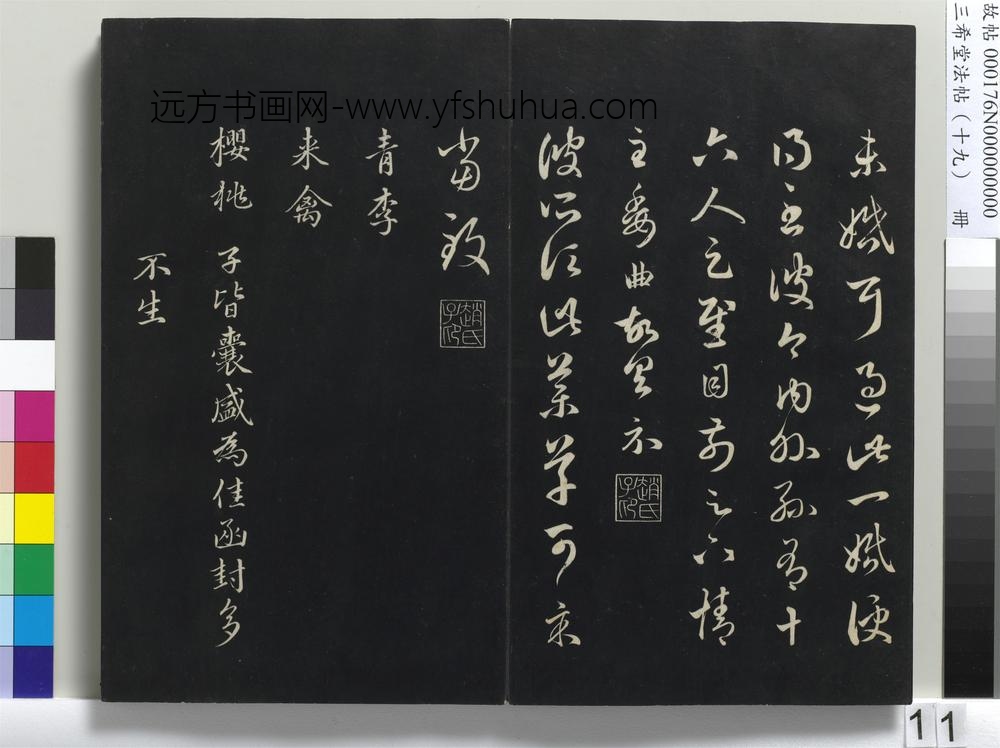 未婚耳過此一婚便
得至彼今內外孫有十
六人足慰目前足下情
至委曲故具示
趙氏子印
彼所須此藥草可示
當致
趙氏子印
青李
来禽
櫻桃 子皆囊盛為佳函封多
不生
远方书画网-www.yfshuhua.com
故帖 000176N000000000
三希堂法帖（十九） 冊
11